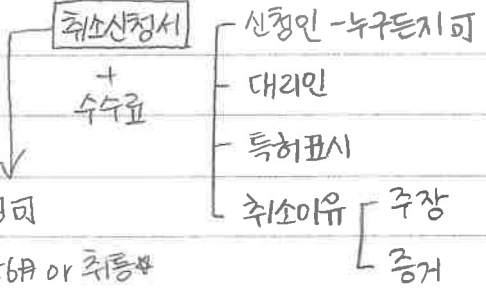 취소신청서
+
수수료
신청인 - 누구든지 可
대리인
특허표시
취소이유
주장
증거
可
6月 or 취통